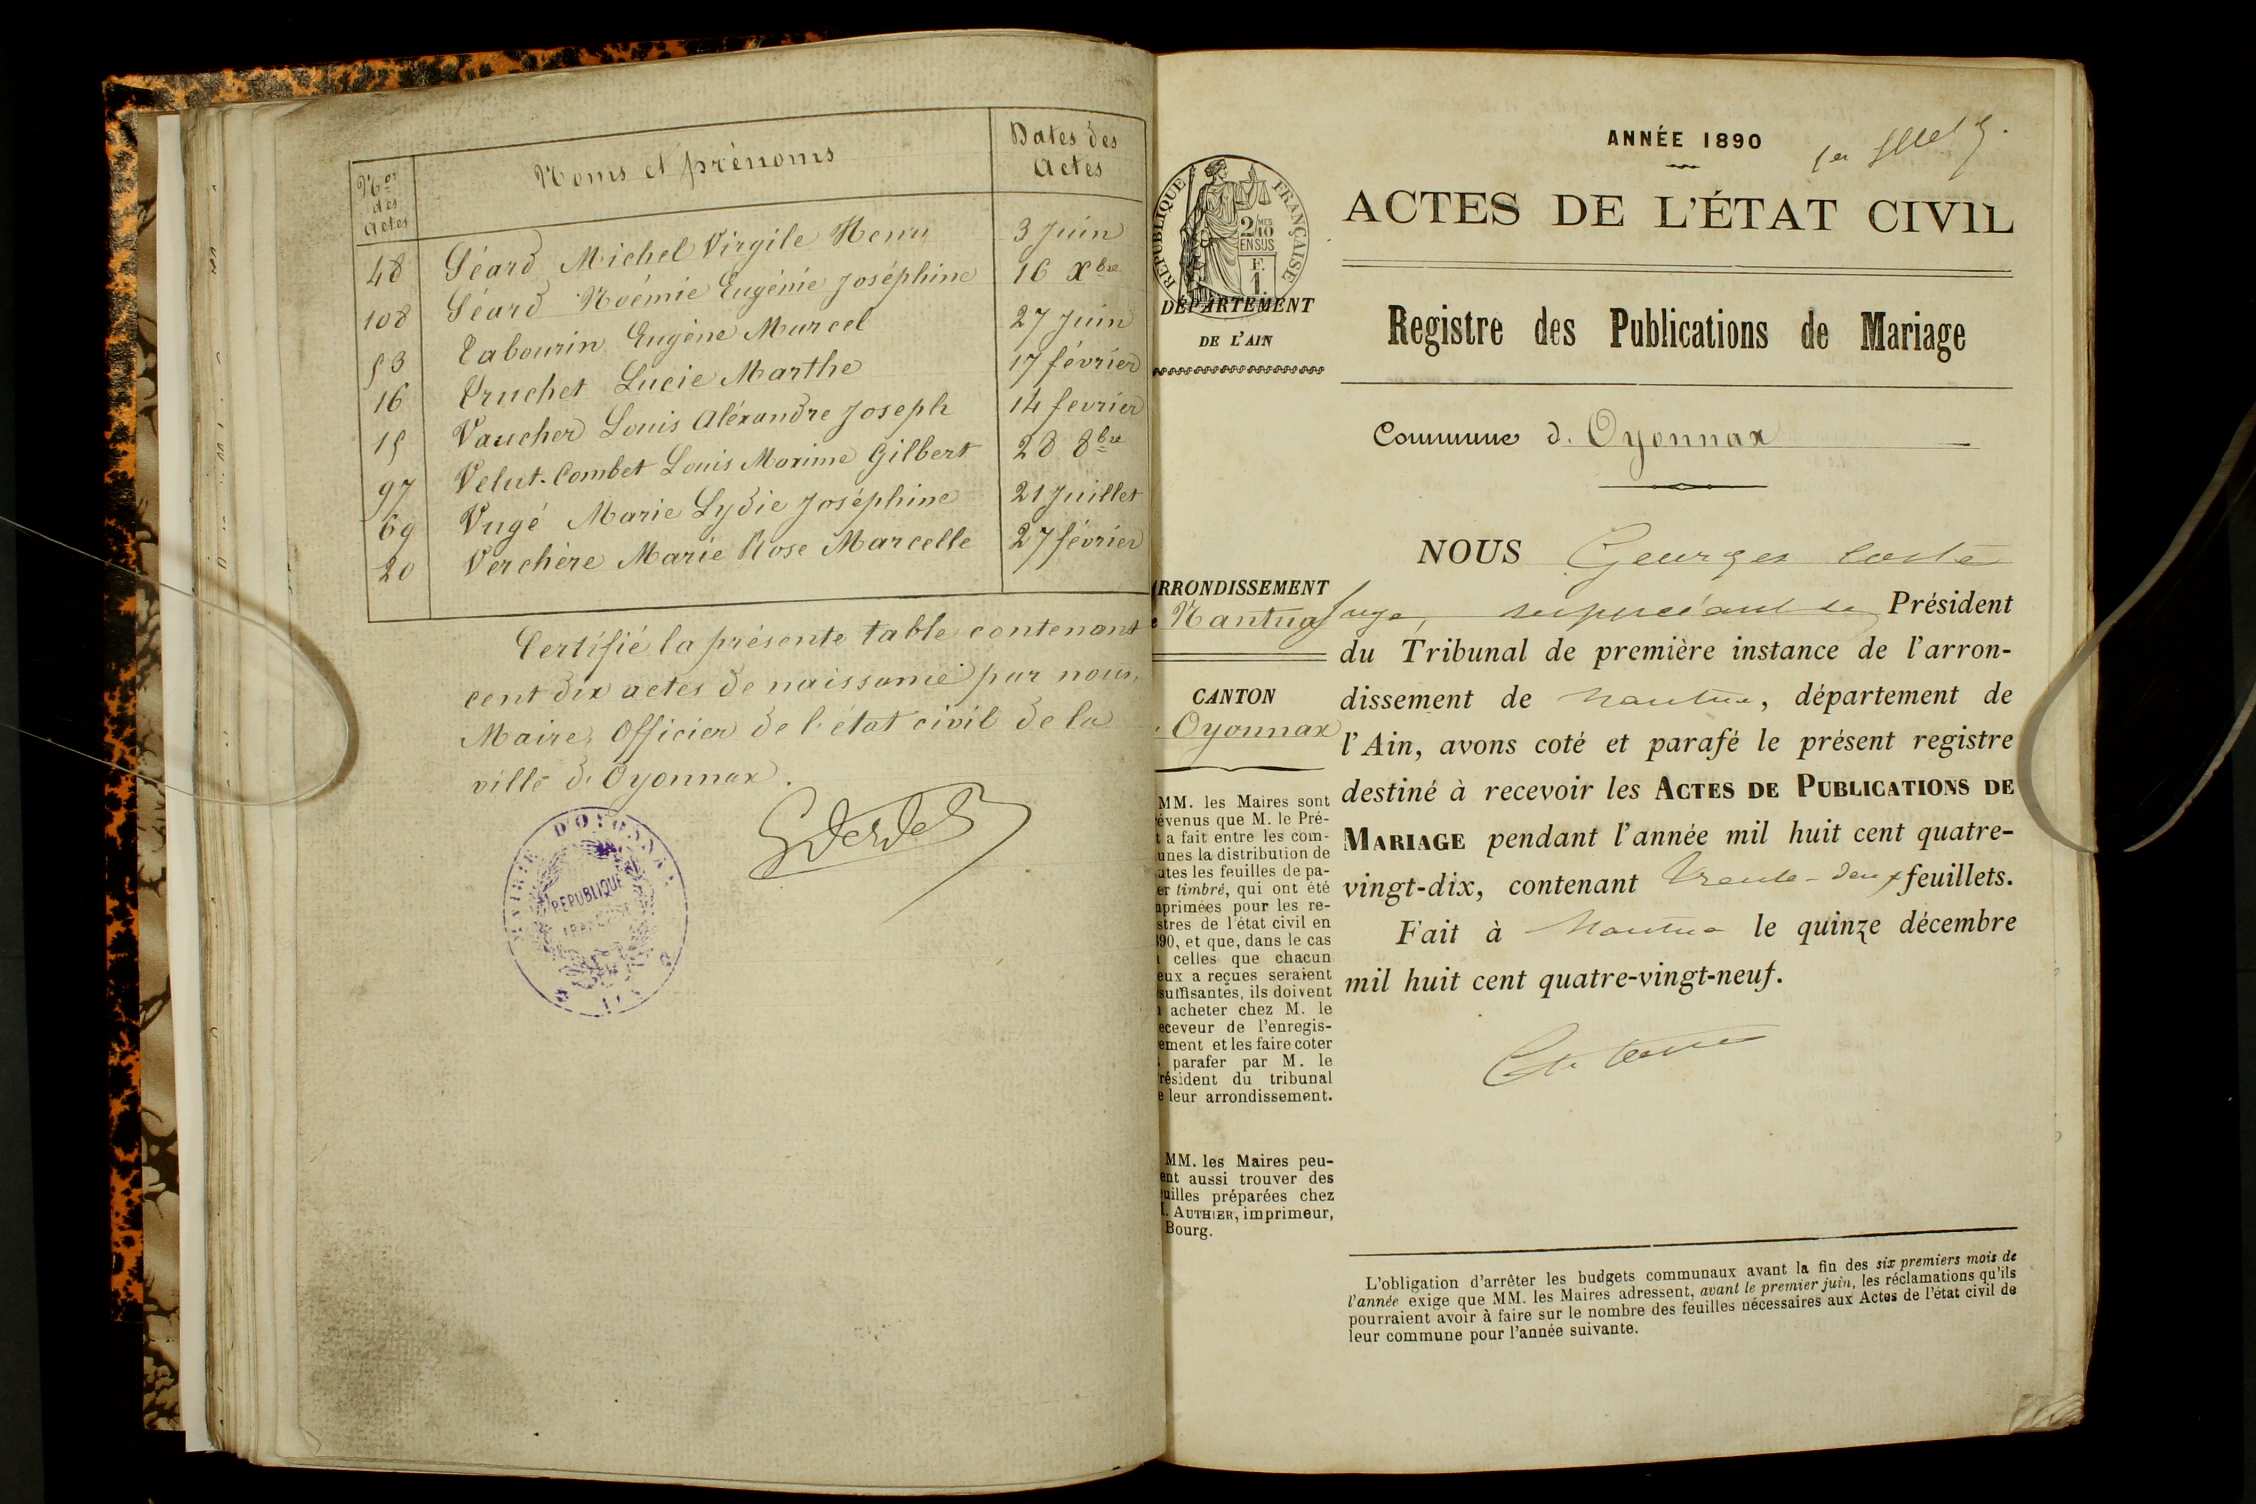 Nos des Actes
Noms et prénoms
Dates des Actes
48 Séard Michel Virgile Henri 3 Juin
108 Séard Noémie Eugénie Joséphine 16 Xbre
53 Tabourin Eugène Marcel 27 Juin
16 Truchet Lucie Marthe 17 février
15 Vaucher Louis Aléxandre Joseph 14 fevrier
97 Velut-Combet Louis Maxime Gilbert 28 8bre
69 Vugé Marie Lydie Joséphine 21 Juillet
20 Verchère Marie Rose Marcelle 27 février
Certifié la présente table contenant
cent dix actes de naissance par nous,
Maire, Officier de l'état civil de la
ville d'Oyonnax.
MAIRIE D'OYONNAX
RÉPUBLIQUE
FRANÇAISE
AIN
ANNÉE 1890
1er
ACTES DE L'ÉTAT CIVIL
RÉPUBLIQUE FRANÇAISE
2/10
EN SUS
F.
1.
DÉPARTEMENT
DE L'AIN
Registre des Publications de Mariage
Commune d. Oyonnax
NOUS Georges Coste
Juge, suppléant le Président
du Tribunal de première instance de l'arron-
dissement de Nantua, département de
l'Ain, avons coté et parafé le présent registre
destiné à recevoir les ACTES DE PUBLICATIONS DE
MARIAGE pendant l'année mil huit cent quatre-
vingt-dix, contenant Trente-deux feuillets.
Fait à Nantua le quinze décembre
mil huit cent quatre-vingt-neuf.
RRONDISSEMENT
e Nantua
CANTON
Oyonnax
MM. les Maires sont
évenus que M. le Pré-
t a fait entre les com-
unes la distribution de
utes les feuilles de pa-
er timbré, qui ont été
primées pour les re-
stres de l'état civil en
90, et que, dans le cas
celles que chacun
eux a reçues seraient
suffisantes, ils doivent
acheter chez M. le
eceveur de l'enregis-
ement et les faire coter
parafer par M. le
résident du tribunal
e leur arrondissement.
MM. les Maires peu-
ent aussi trouver des
uilles préparées chez
. AUTHIER, imprimeur,
Bourg.
L'obligation d'arrêter les budgets communaux avant la fin des six premiers mois de
l'année exige que MM. les Maires adressent, avant le premier juin, les réclamations qu'ils
pourraient avoir à faire sur le nombre des feuilles nécessaires aux Actes de l'état civil de
leur commune pour l'année suivante.